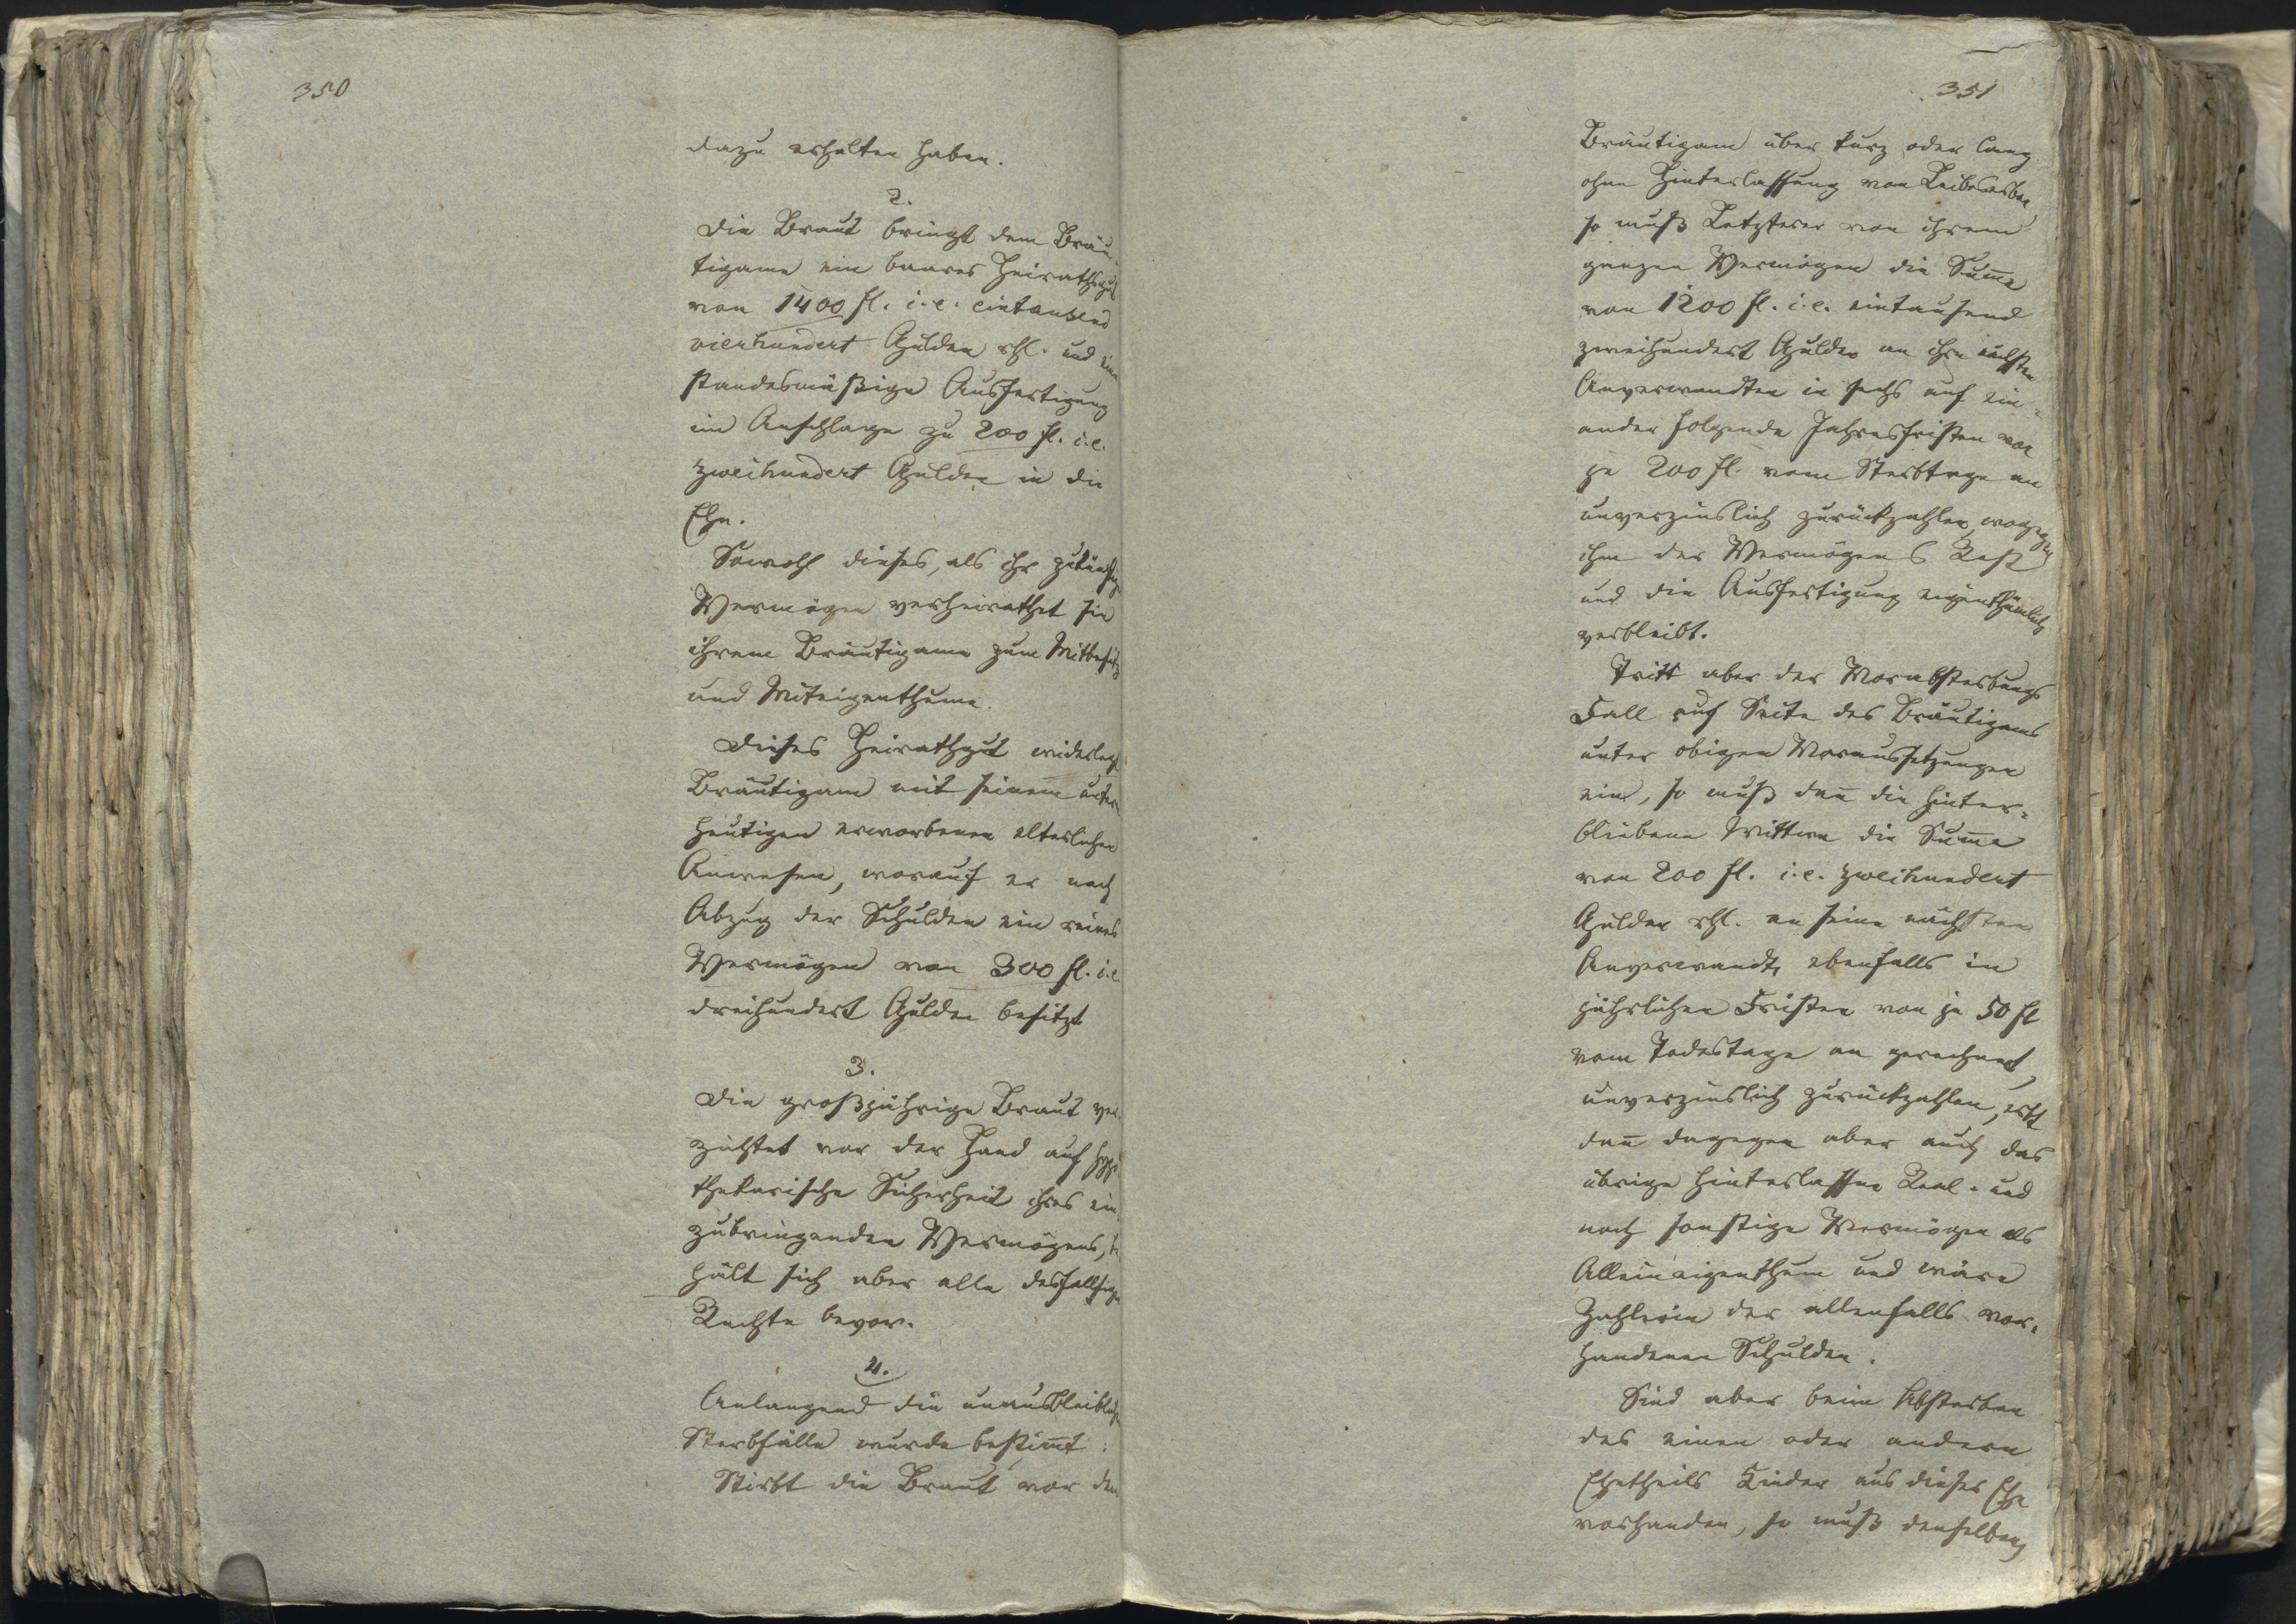 350
dazu erhalten haben.
2.
Die Braut bringt dem Bräu-
tigame ein baares Heirathsgut
von 1400 fl. i. e. eintausend
vierhundert Gulden rhl. und eine
standesmäßige Ausfertigung
im Anschlage zu 200 fl. i. e.
zweihundert Gulden in die
Ehe.
Sowohl dieses, als ihr zukünftig
Vermögen verheirathet sie
ihrem Bräutigame zum Mitbesitz
und Miteigenthume.
Dieses Heirathgut widerlegt
Bräutigam mit seinem unter
heutigen erworbenen elterlichen
Anwesen, worauf er nach
Abzug der Schulden ein reines
Vermögen von 300 fl. i. e.
dreihundert Gulden besitzt
3.
Die großjährige Braut ver-
zichtet vor der Hand auf hypo-
thekarische Sicherheit ihres ein-
zubringenden Vermögens, be
hält sich aber alle desfallsigen
Rechte bevor.
4.
Anlangend die unausbleiblichen
Sterbfälle wurde bestimt:
Stirbt die Braut vor dem
351
Bräutigam über kurz oder lang
ohne Hinterlassung von Leibeserben
so muß Letzterer von ihrem
ganzen Vermögen die Suma
von 1200 fl. i. e. eintausend
zweihundert Gulden an ihre nächsten
Anverwandten in sechs auf ein-
ander folgende Jahresfristen von
je 200 fl. vom Sterbtage an
unverzinslich zurückzahlen, wogegen
ihm der Vermögens Rest
und die Ausfertigung eigenthümlich
verbleibt.
Tritt aber der Vorabsterbungs
Fall auf Seite des Bräutigams
unter obigen Voraussetzungen
ein, so muß dan die hinter-
bliebene Wittwe die Suma
von 200 fl. i. e. zweihundert
Gulden rhl. an seine nächsten
Anverwandte ebenfalls in
jährlichen Fristen von je 50 fl
vom Todestage an gerechnet,
unverzinslich zurückzahlen, erbt
dan dagegen aber auch das
übrige hinterlassene Real- und
noch sonstige Vermögen als
Alleineigenthum und wäre
Zahlerin der allenfalls vor-
handenen Schulden.
Sind aber beim Absterben
des einen oder andern
Ehetheils Kinder aus dieser Ehe
vorhanden, so muß denselben